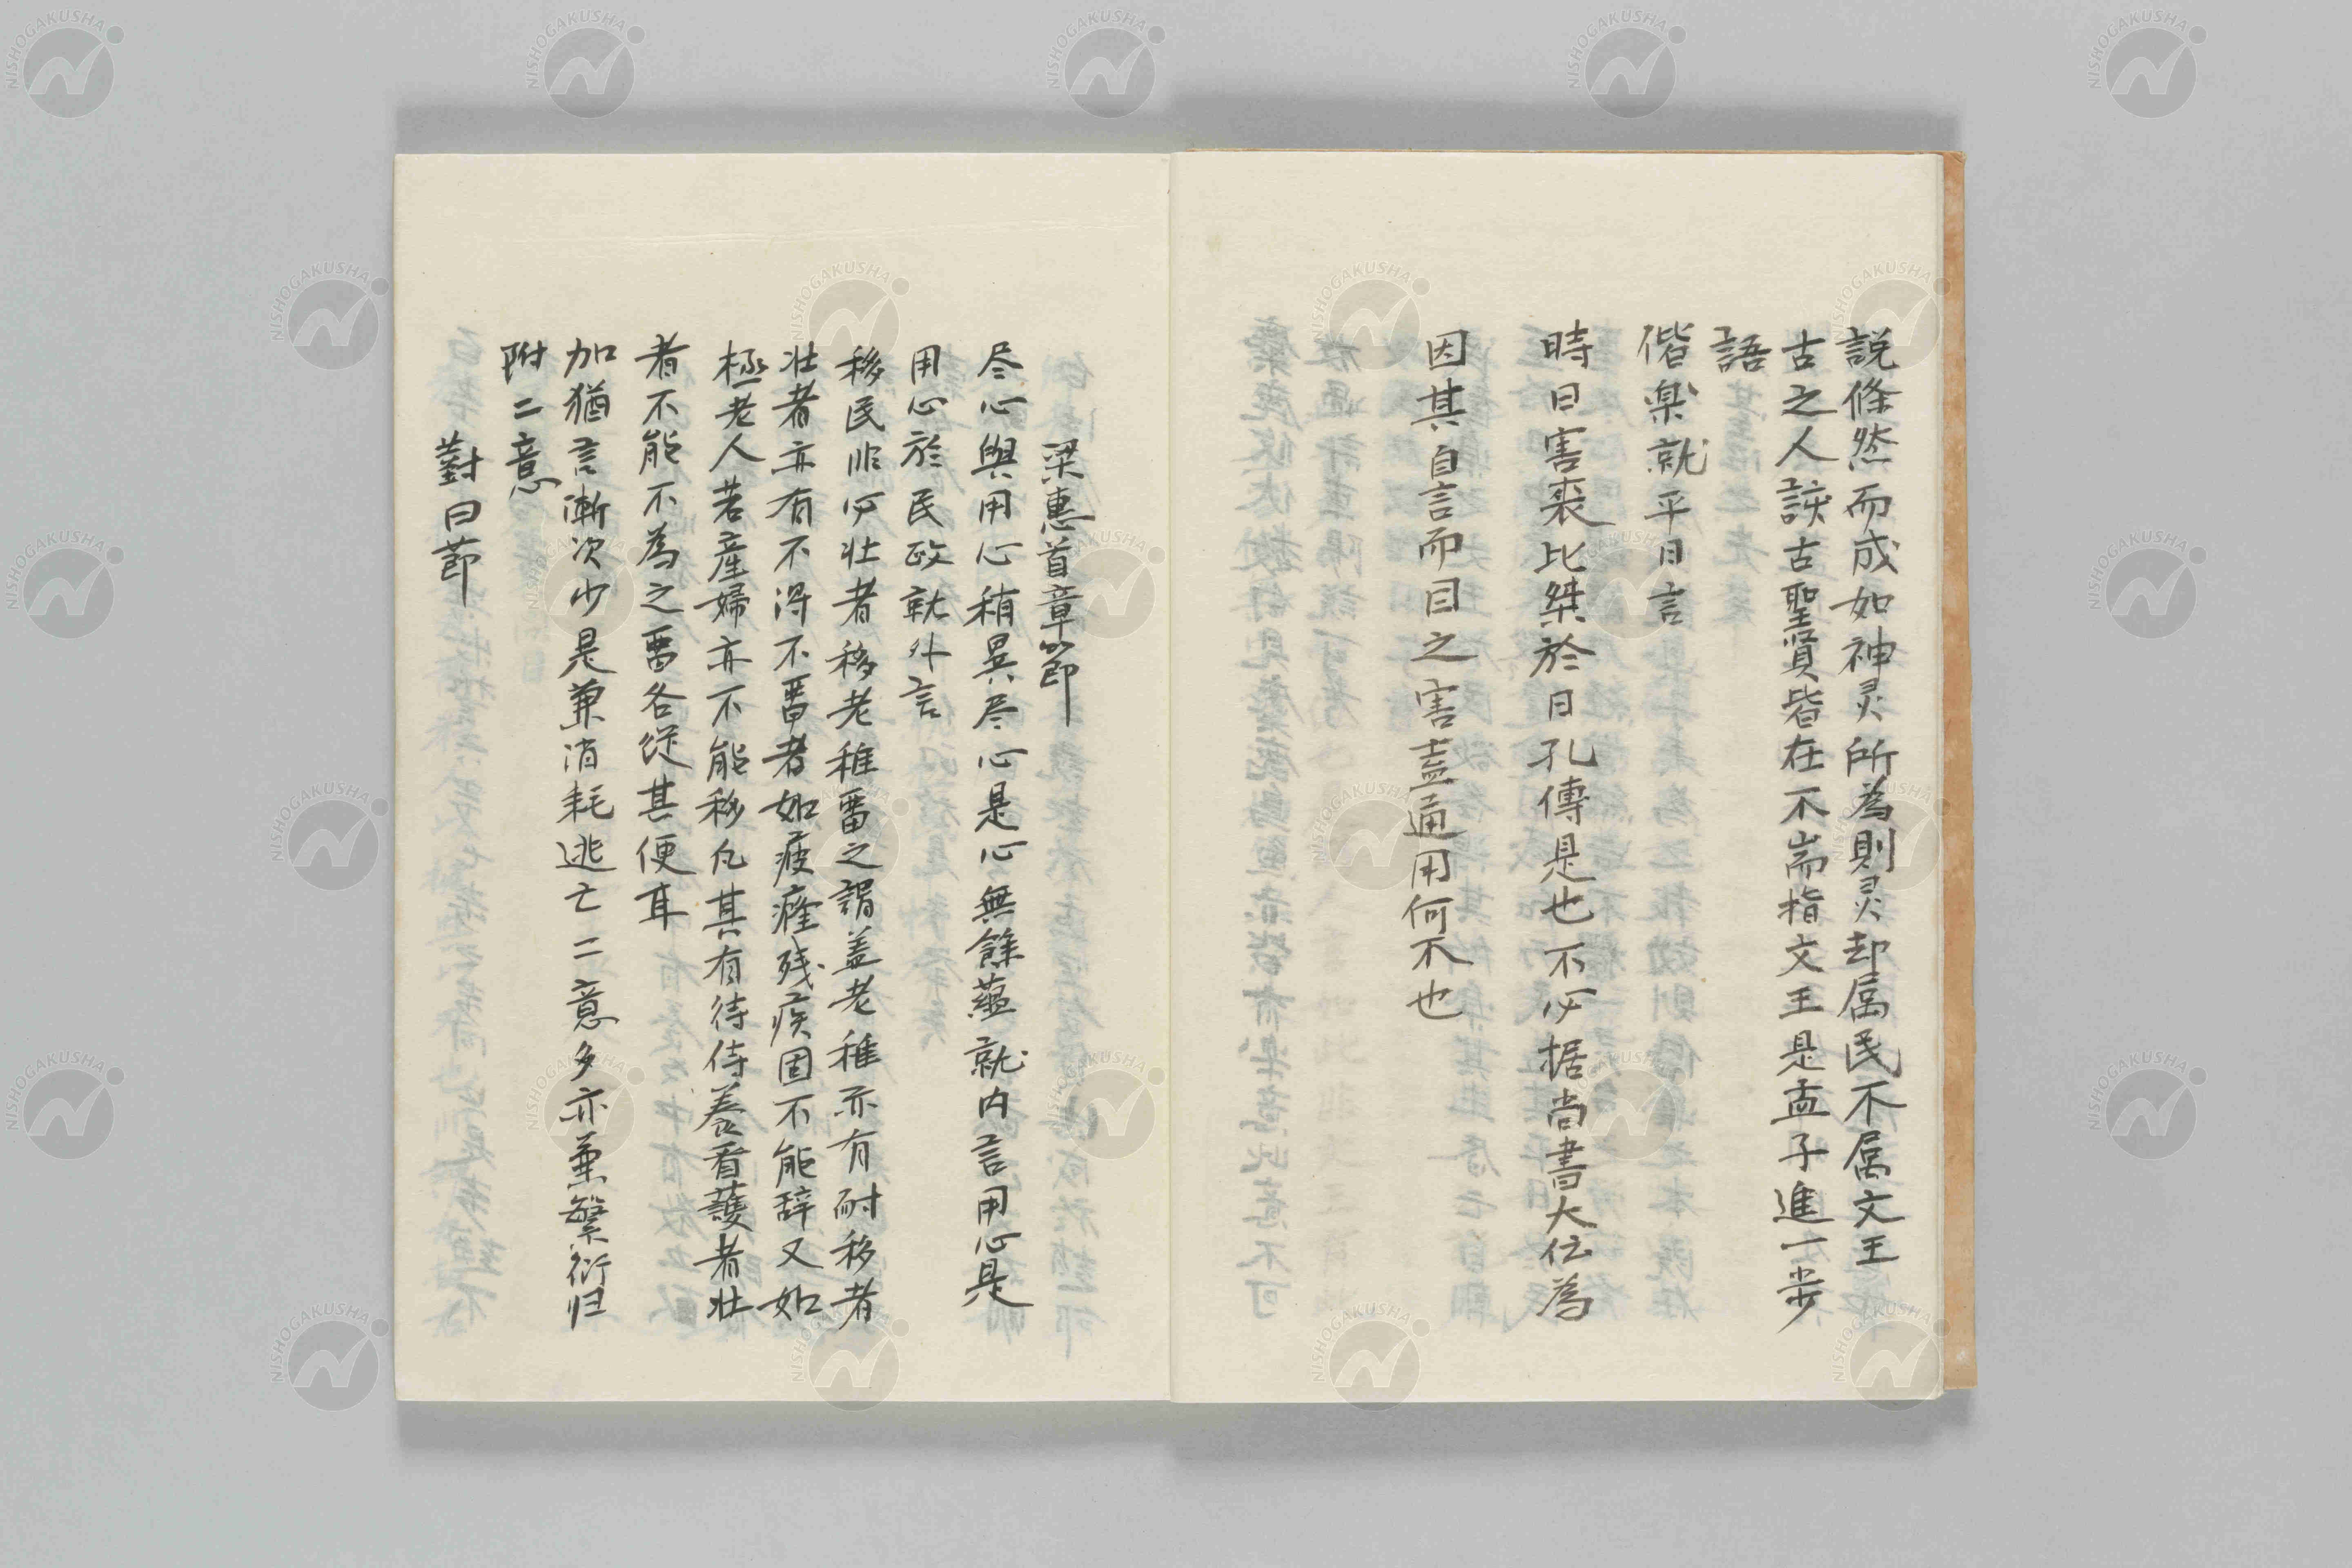 説條然而成如神灵所為則灵却属民不属文王
古之人該古聖賢皆在不耑指文王是孟子進一步
語
偕楽就平日言
時日害喪比桀於日孔傳是也不必据尚書大伝為
因其自言而目之害盍通用何不也
梁惠首章節
尽心與用心稍異尽心是心無餘蘊就内言用心是
用心於民政就外言
移民非必壮者移老稚畱之謂盖老稚亦有耐移者
壮者亦有不得不畱者如疲癃残疾固不能辞又如
極老人若産婦亦不能移凡其有待侍養看護者壮
者不能不為之畱各従其便耳
加猶言漸次少是兼消耗逃亡二意多亦兼繁衍归
附二意
對曰節
NISHOGAKUSHA